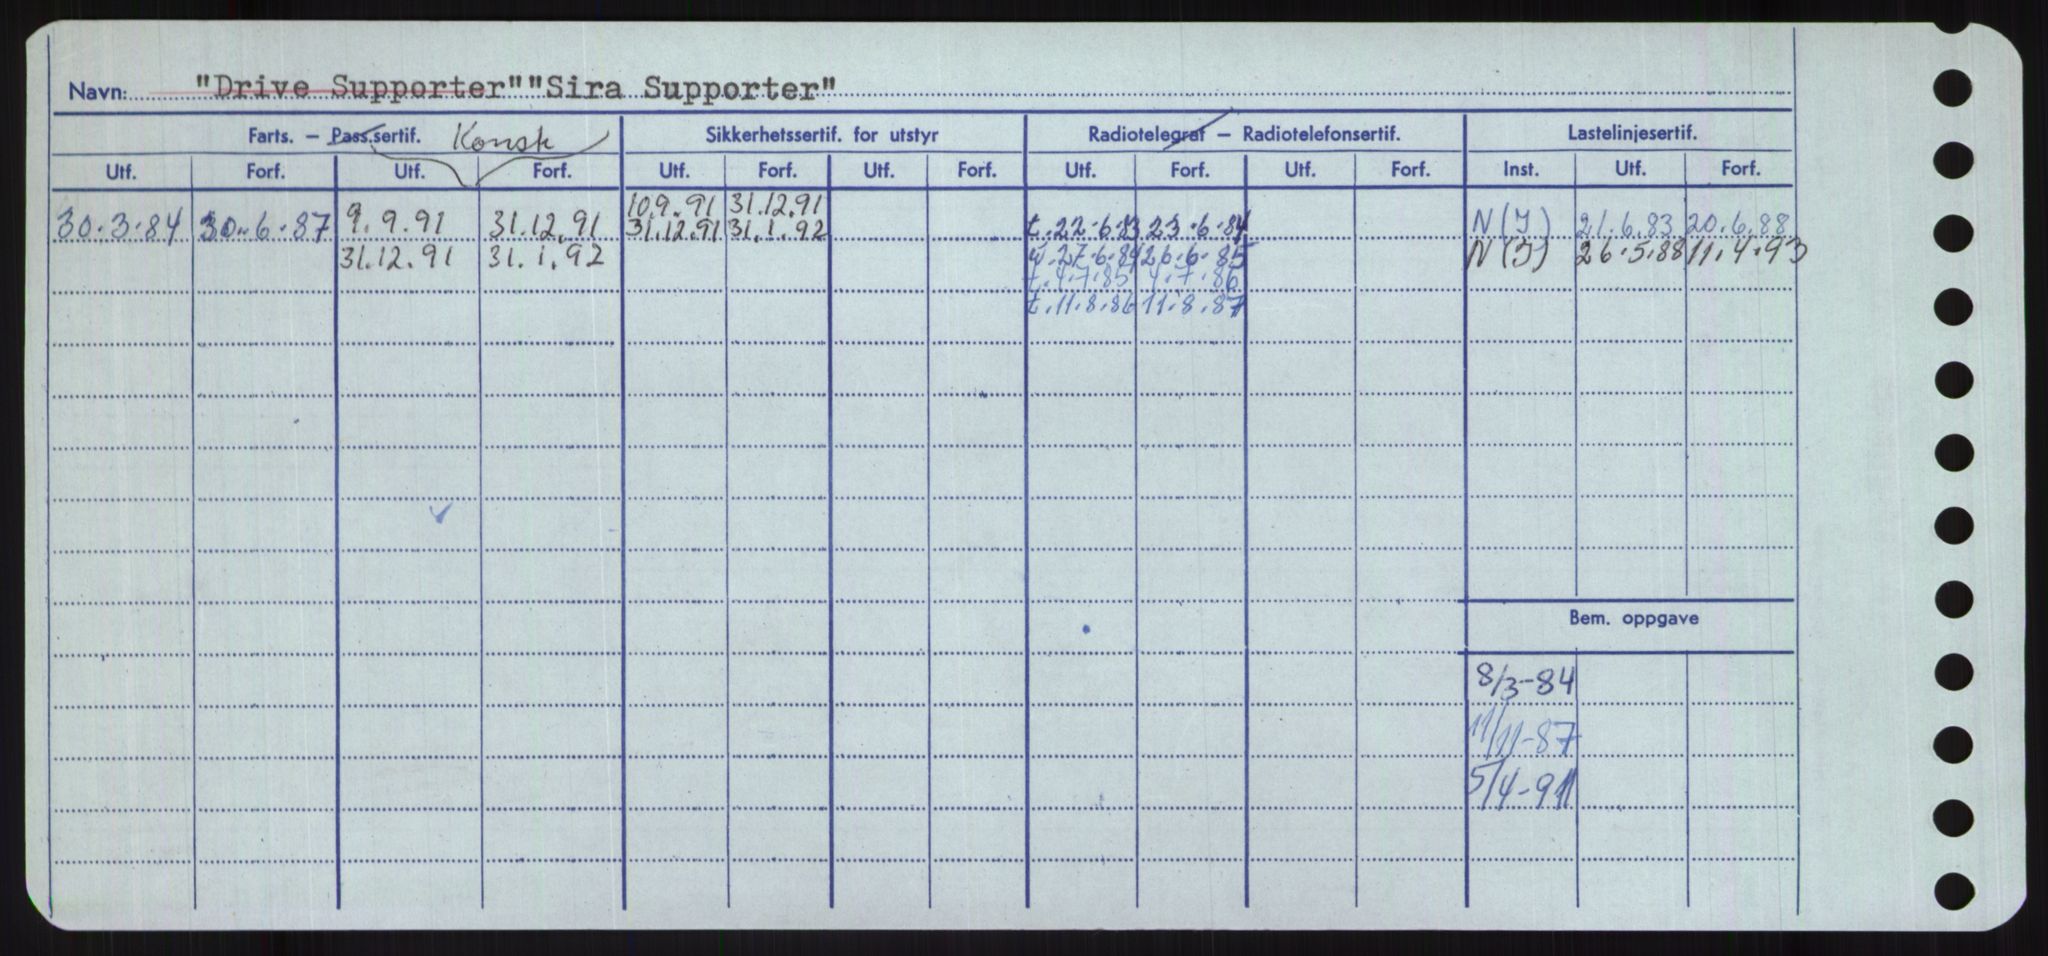 Navn: "Drive Supporter" "Sira Supporter"
Farts. – Pass.sertif. Konstr Sikkerhetssertif. for utstyr Radiotelegraf – Radiotelefonsertif. Lastelinjesertif.
Utf. Forf. Utf. Forf. Utf. Forf. Utf. Forf. Utf. Forf. Utf. Forf. Inst. Utf. Forf.
10.9.91 31.12.91
30.3.84 30.6.87 9.9.91 31.12.91 31.12.91 31.1.92 t.22.6.83 23.6.84 N(I) 21.6.83 20.6.88
31.12.91 31.1.92 27.6.84 26.6.85 N(I) 26.5.88 11.4.93
t.4.7.85 4.7.86
t.11.8.86 11.8.87
Bem. oppgave
8/3-84
11/11-87
5/4-91